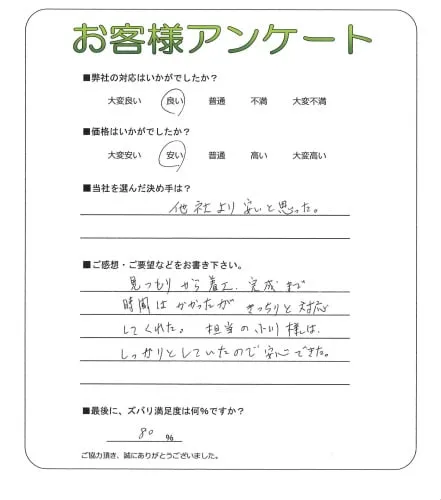 お客様アンケート
■弊社の対応はいかがでしたか?
大変良い 良い 普通 不満 大変不満
■価格はいかがでしたか?
大変安い 安い 普通 高い 大変高い
■当社を選んだ決め手は?
他社より安いと思った。
■ご感想・ご要望などをお書き下さい。
見つもりから着工、完成まで
時間はかかったがきっちりと対応
してくれた。担当の小川様は、
しっかりとしていたので安心できた。
■最後に、ズバリ満足度は何%ですか?
80 %
ご協力頂き、誠にありがとうございました。